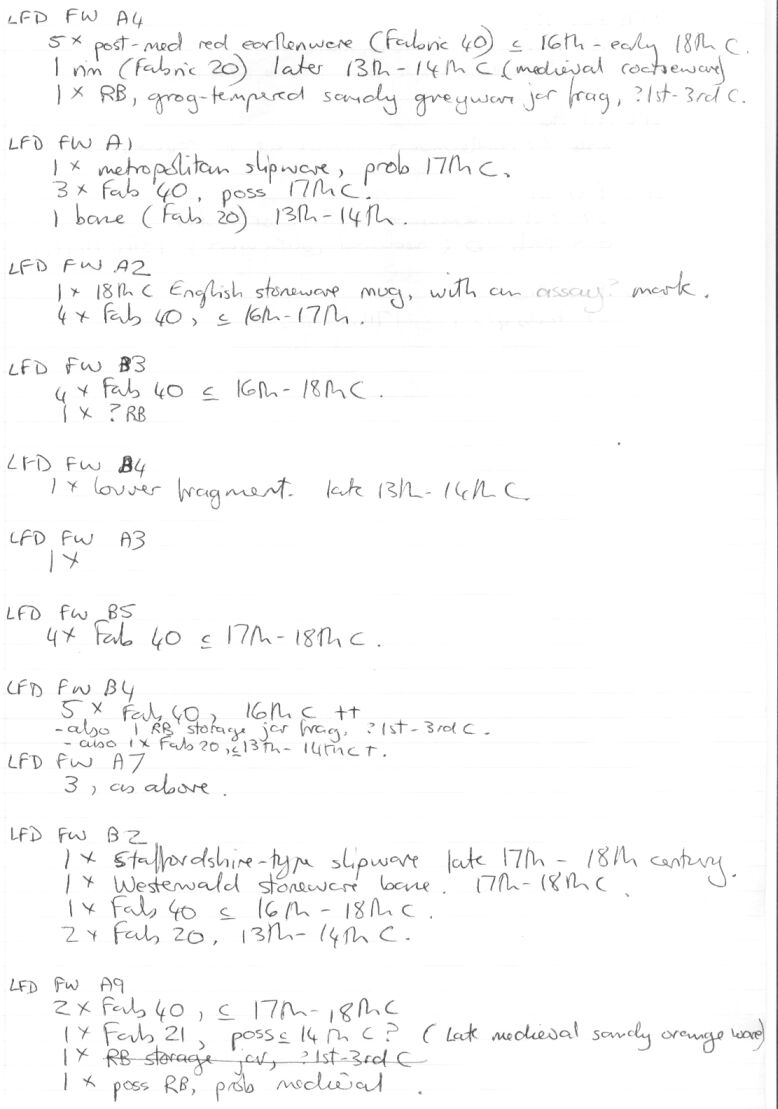 LFD FW A4
5 x post-med red earthenware (Fabric 40) c 16th - early 18th C.
1 rim (Fabric 20) later 13th - 14th C (medieval coarseware)
1 x RB, grog-tempered sandy greyware jar frag, ?1st-3rd C.
LFD FW A1
1 x metropolitan slipware, prob 17th C.
3 x Fab 40, poss 17th C.
1 base (Fab 20) 13th-14th.
LFD FW A2
1 x 18th C English stoneware mug, with an assay? mark.
4 x Fab 40, c 16th-17th.
LFD FW B3
4 x Fab 40 c 16th - 18th C.
1 x ?RB
LFD FW B4
1 x louver fragment. late 13th - 14th C.
LFD FW A3
1 x
LFD FW B5
4 x Fab 40 c 17th - 18th C.
LFD FW B4
5 x Fab 40, 16th C ++
- also 1 RB storage jar frag, ?1st-3rd C.
- also 1 x Fab 20, c 13th - 14th C +.
LFD FW A7
3, as above.
LFD FW B2
1 x Staffordshire-type slipware late 17th - 18th century.
1 x Westerwald stoneware base. 17th-18th C.
1 x Fab 40 c 16th - 18th C.
2 x Fab 20, 13th - 14th C.
LFD FW A9
2 x Fab 40, c 17th - 18th C
1 x Fab 21, poss c 14th C? (Late medieval sandy orange ware)
1 x RB storage jar, ?1st-3rd C
1 x poss RB, prob medieval.